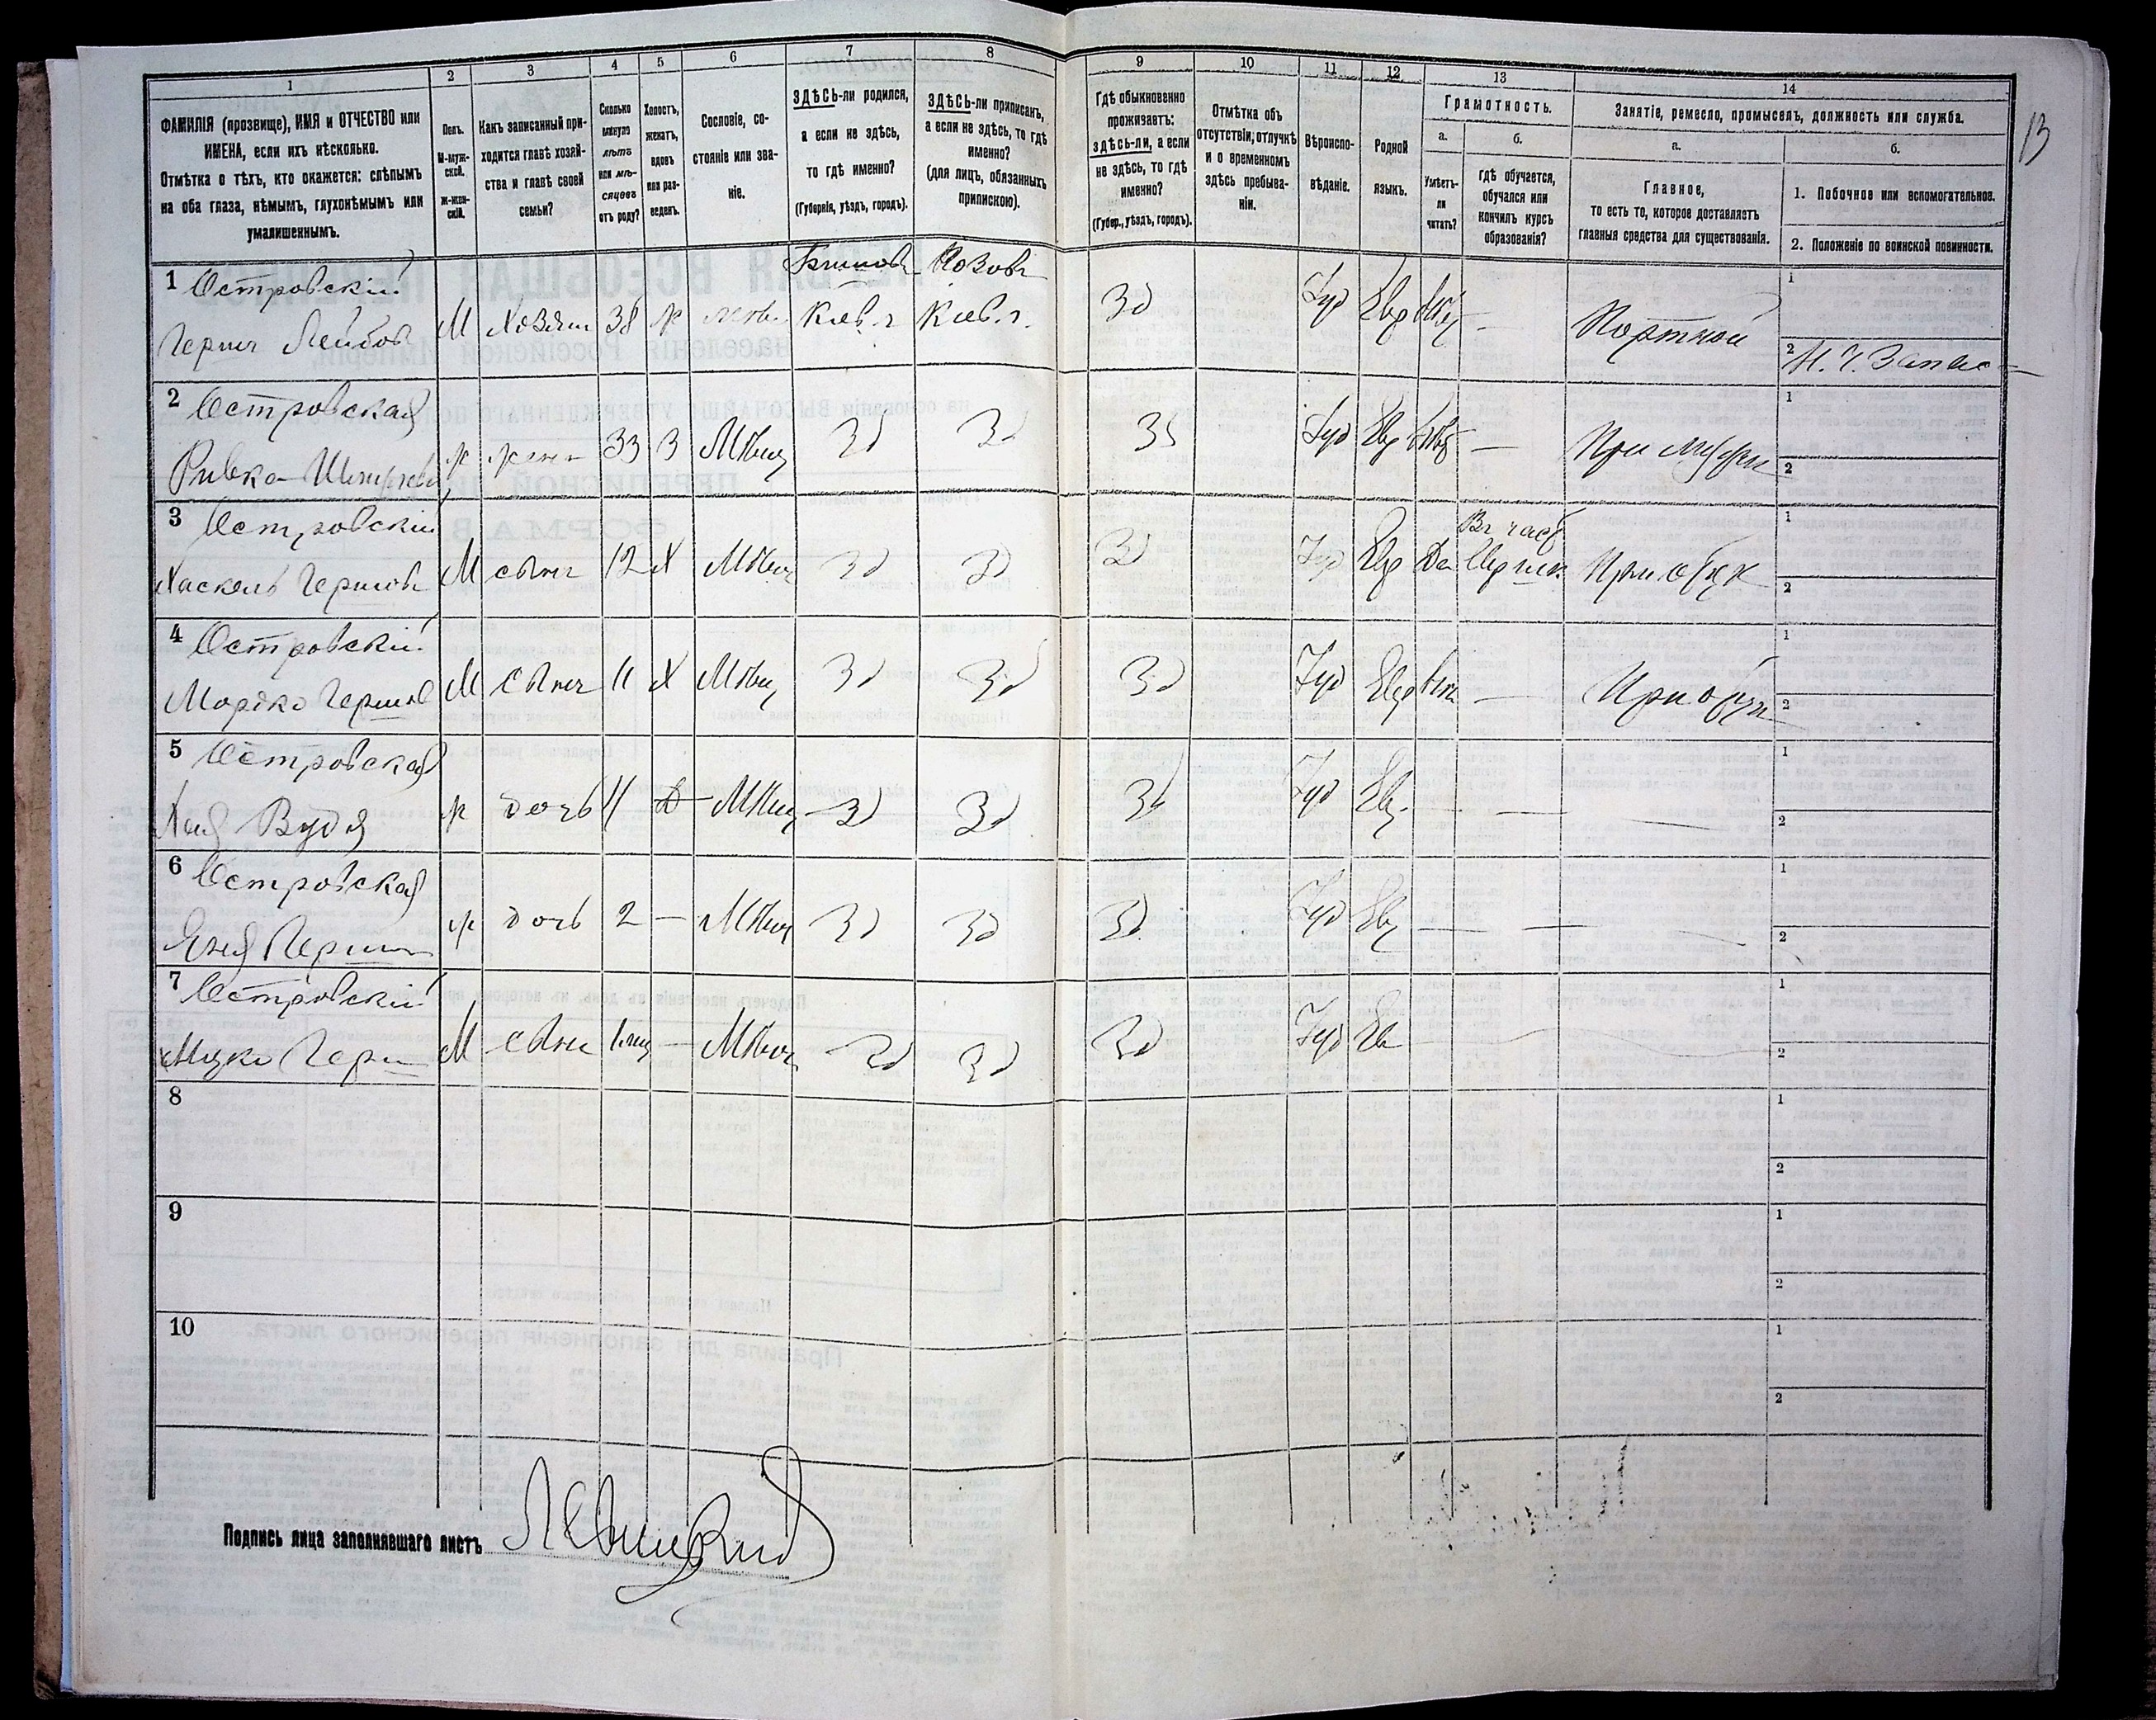 1
2
3
4
5
6
7
8
9
10
11
12
13
14
13
ФАМИЛІЯ (прозвище), ИМЯ и ОТЧЕСТВО или
ИМЕНА, если ихъ нѣсколько.
Отмѣтка о тѣхъ, кто окажется: слѣпымъ
на оба глаза, нѣмымъ, глухонѣмымъ или
умалишеннымъ.
Полъ.
М-муж-
ской.
Ж-жен-
скій.
Какъ записанный при-
ходится главѣ хозяй-
ства и главѣ своей
семьи?
Сколько
минуло
лѣтъ
или мѣ-
сяцевъ
отъ роду?
Холостъ,
женатъ,
вдовъ
или раз-
веденъ.
Сословіе, со-
стояніе или зва-
ніе.
ЗДѢСЬ-ли родился,
а если не здѣсь,
то гдѣ именно?
(Губернія, уѣздъ, городъ).
ЗДѢСЬ-ли приписанъ,
а если не здѣсь, то гдѣ
именно?
(для лицъ, обязанныхъ
припискою).
Гдѣ обыкновенно
проживаетъ:
здѣсь-ли, а если
не здѣсь, то гдѣ
именно?
(Губер., уѣздъ, городъ).
Отмѣтка объ
отсутствіи, отлучкѣ
и о временномъ
здѣсь пребыва-
ніи.
Вѣроиспо-
вѣданіе.
Родной
языкъ.
Грамотность.
а.
Умѣетъ-
ли
читать?
б.
гдѣ обучается,
обучался или
кончилъ курсъ
образованія?
Занятіе, ремесло, промыселъ, должность или служба.
а.
Главное,
то есть то, которое доставляетъ
главныя средства для существованія.
б.
1. Побочное или вспомогательное.
2. Положеніе по воинской повинности.
1 Островскій
Лейбов М Хозяин 38 ж Киев. г Киев. г. Зд Іуд Евр Портной
1
2
2 Островская
Ривка ж жена 33 З Мѣщ Зд Зд Зд Іуд Евр — При
1
2
3 Островскій
Хаскель М сынъ 12 Х Мѣщ Зд Зд Зд Іуд Евр Да При
1
2
4 Островскій
Мордко М сынъ 11 Х Мѣщ Зд Зд Зд Іуд Евр — При
1
2
5 Островская
Хая ж дочь 4 Мѣщ Зд Зд Зд Іуд Евр — —
1
2
6 Островская
ж дочь 2 — Мѣщ Зд Зд Зд Іуд Евр — —
1
2
7 Островскій
М сынъ — Мѣщ Зд Зд Зд Іуд Ев
1
2
8
1
2
9
1
2
10
1
2
Подпись лица заполнявшаго листъ